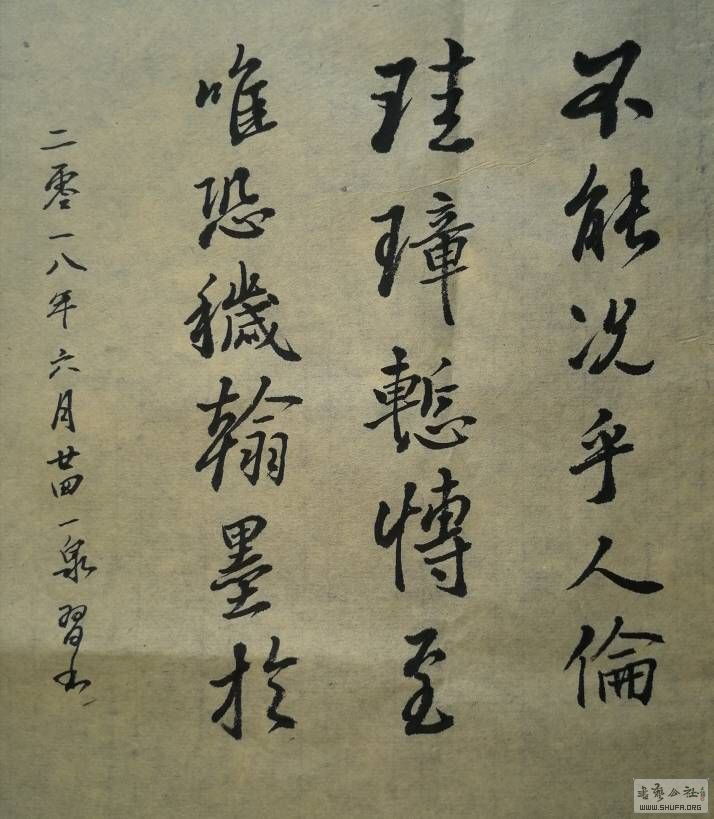 不能况乎人倫
珪璋慙慱至
唯恐穢翰墨於
二零一八年六月廿四一泉習书
書藝公社
WWW.SHUFA.ORG